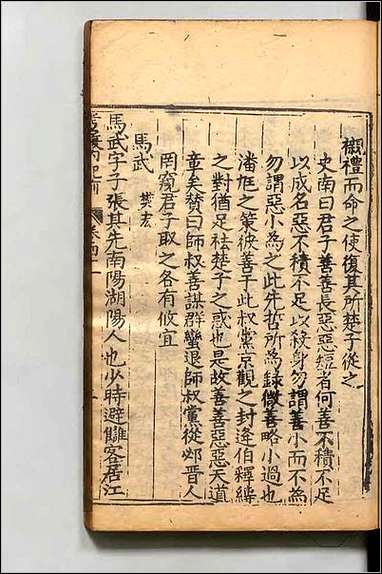 櫬禮而命之使復其所楚子從之
史南曰君子善善長惡惡短者何善不積不足
以成名惡不積不足以殺身勿謂善小而不為
勿謂惡小為之此先哲所為錄微善略小過也
潘尫之策彼善于此權黨京觀之封逢伯釋縛
之對猶足袪楚子之惑也是故善善惡惡天道
章矣賛曰師叔善謀群蠻退師叔黨從邲晋人
罔窺君子取之各有攸宜
馬武 樊宏
馬武字子張其先南陽湖陽人也少時避讎客居江